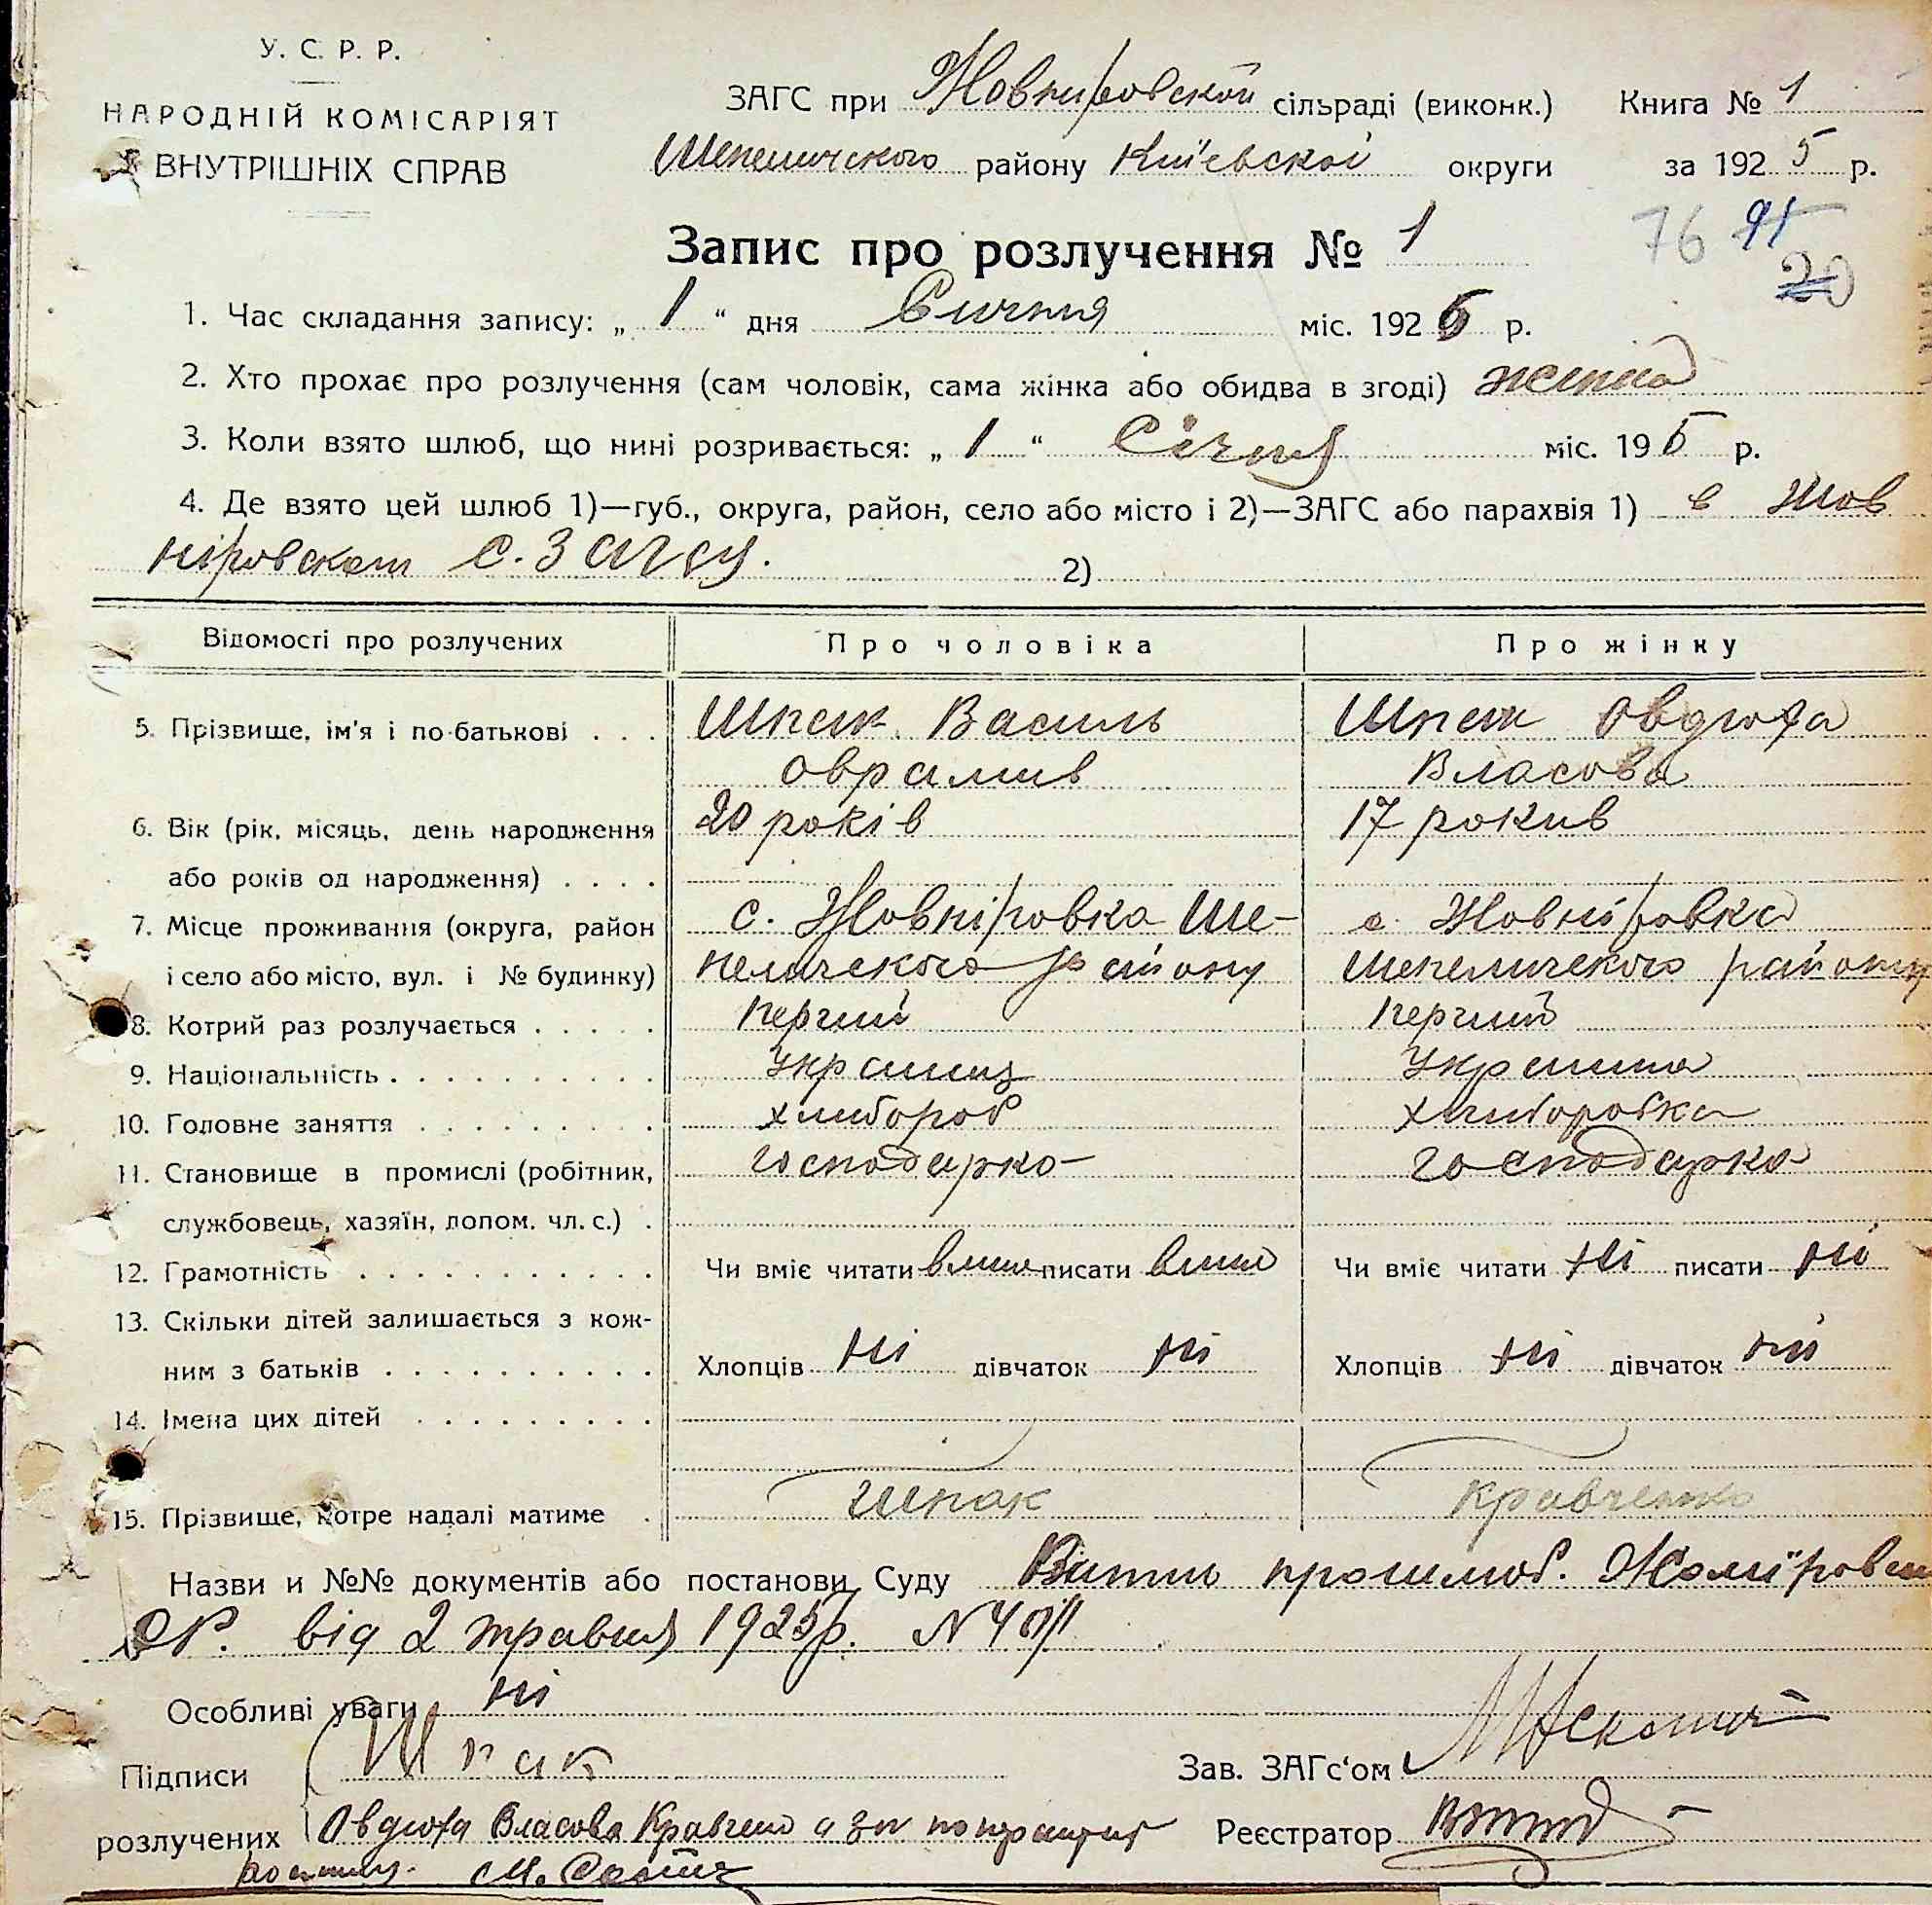 У. С. Р. Р.
НАРОДНІЙ КОМІСАРІЯТ
ВНУТРІШНІХ СПРАВ
ЗАГС при Жовнировской сільраді (виконк.) Книга № 1
Шепеличского району Київскої округи за 1925 р.
Запис про розлучення № 1
76 91
20
1. Час складання запису: „ 1 “ дня Сичня міс. 1926 р.
2. Хто прохає про розлучення (сам чоловік, сама жінка або обидва в згоді) жінка
3. Коли взято шлюб, що нині розривається: „ 1 “ Січня міс. 19 5 р.
4. Де взято цей шлюб 1)—губ., округа, район, село або місто і 2)—ЗАГС або парахвія 1) в Жов
ніровском С. Загсу. 2)
Відомості про розлучених Про чоловіка Про жінку
5. Прізвище, ім'я і по-батькові . . . Шпак Василь Шпак Овдюха
Оврамив Власова
6. Вік (рік, місяць, день народження 20 років 17 рокив
або років од народження) . . . .
7. Місце проживання (округа, район с. Жовніровка Ше- с. Жовніровка
і село або місто, вул. і № будинку) пеличского району Шепеличского району
8. Котрий раз розлучається . . . . . перчий перчий
9. Національність . . . . . . . . . . . Украинц Украинка
10. Головне заняття . . . . . . . . . . хлибороб хлиборобка
11. Становище в промислі (робітник, господарко- господарка
службовець, хазяїн, допом. чл. с.) .
12. Грамотність . . . . . . . . . . . . Чи вміє читати вмие писати вмие Чи вміє читати ні писати ні
13. Скільки дітей залишається з кож-
ним з батьків . . . . . . . . . . . Хлопців ні дівчаток ні Хлопців ні дівчаток ні
14. Імена цих дітей . . . . . . . . .
15. Прізвище, котре надалі матиме . Шпак Кравченко
Назви и №№ документів або постанови Суду
від 2 травня 1925р. N
Особливі уваги ні
Підписи Шпак Зав. ЗАГс‘ом
розлучених Овдюха Власова Кравченко а за Реєстратор